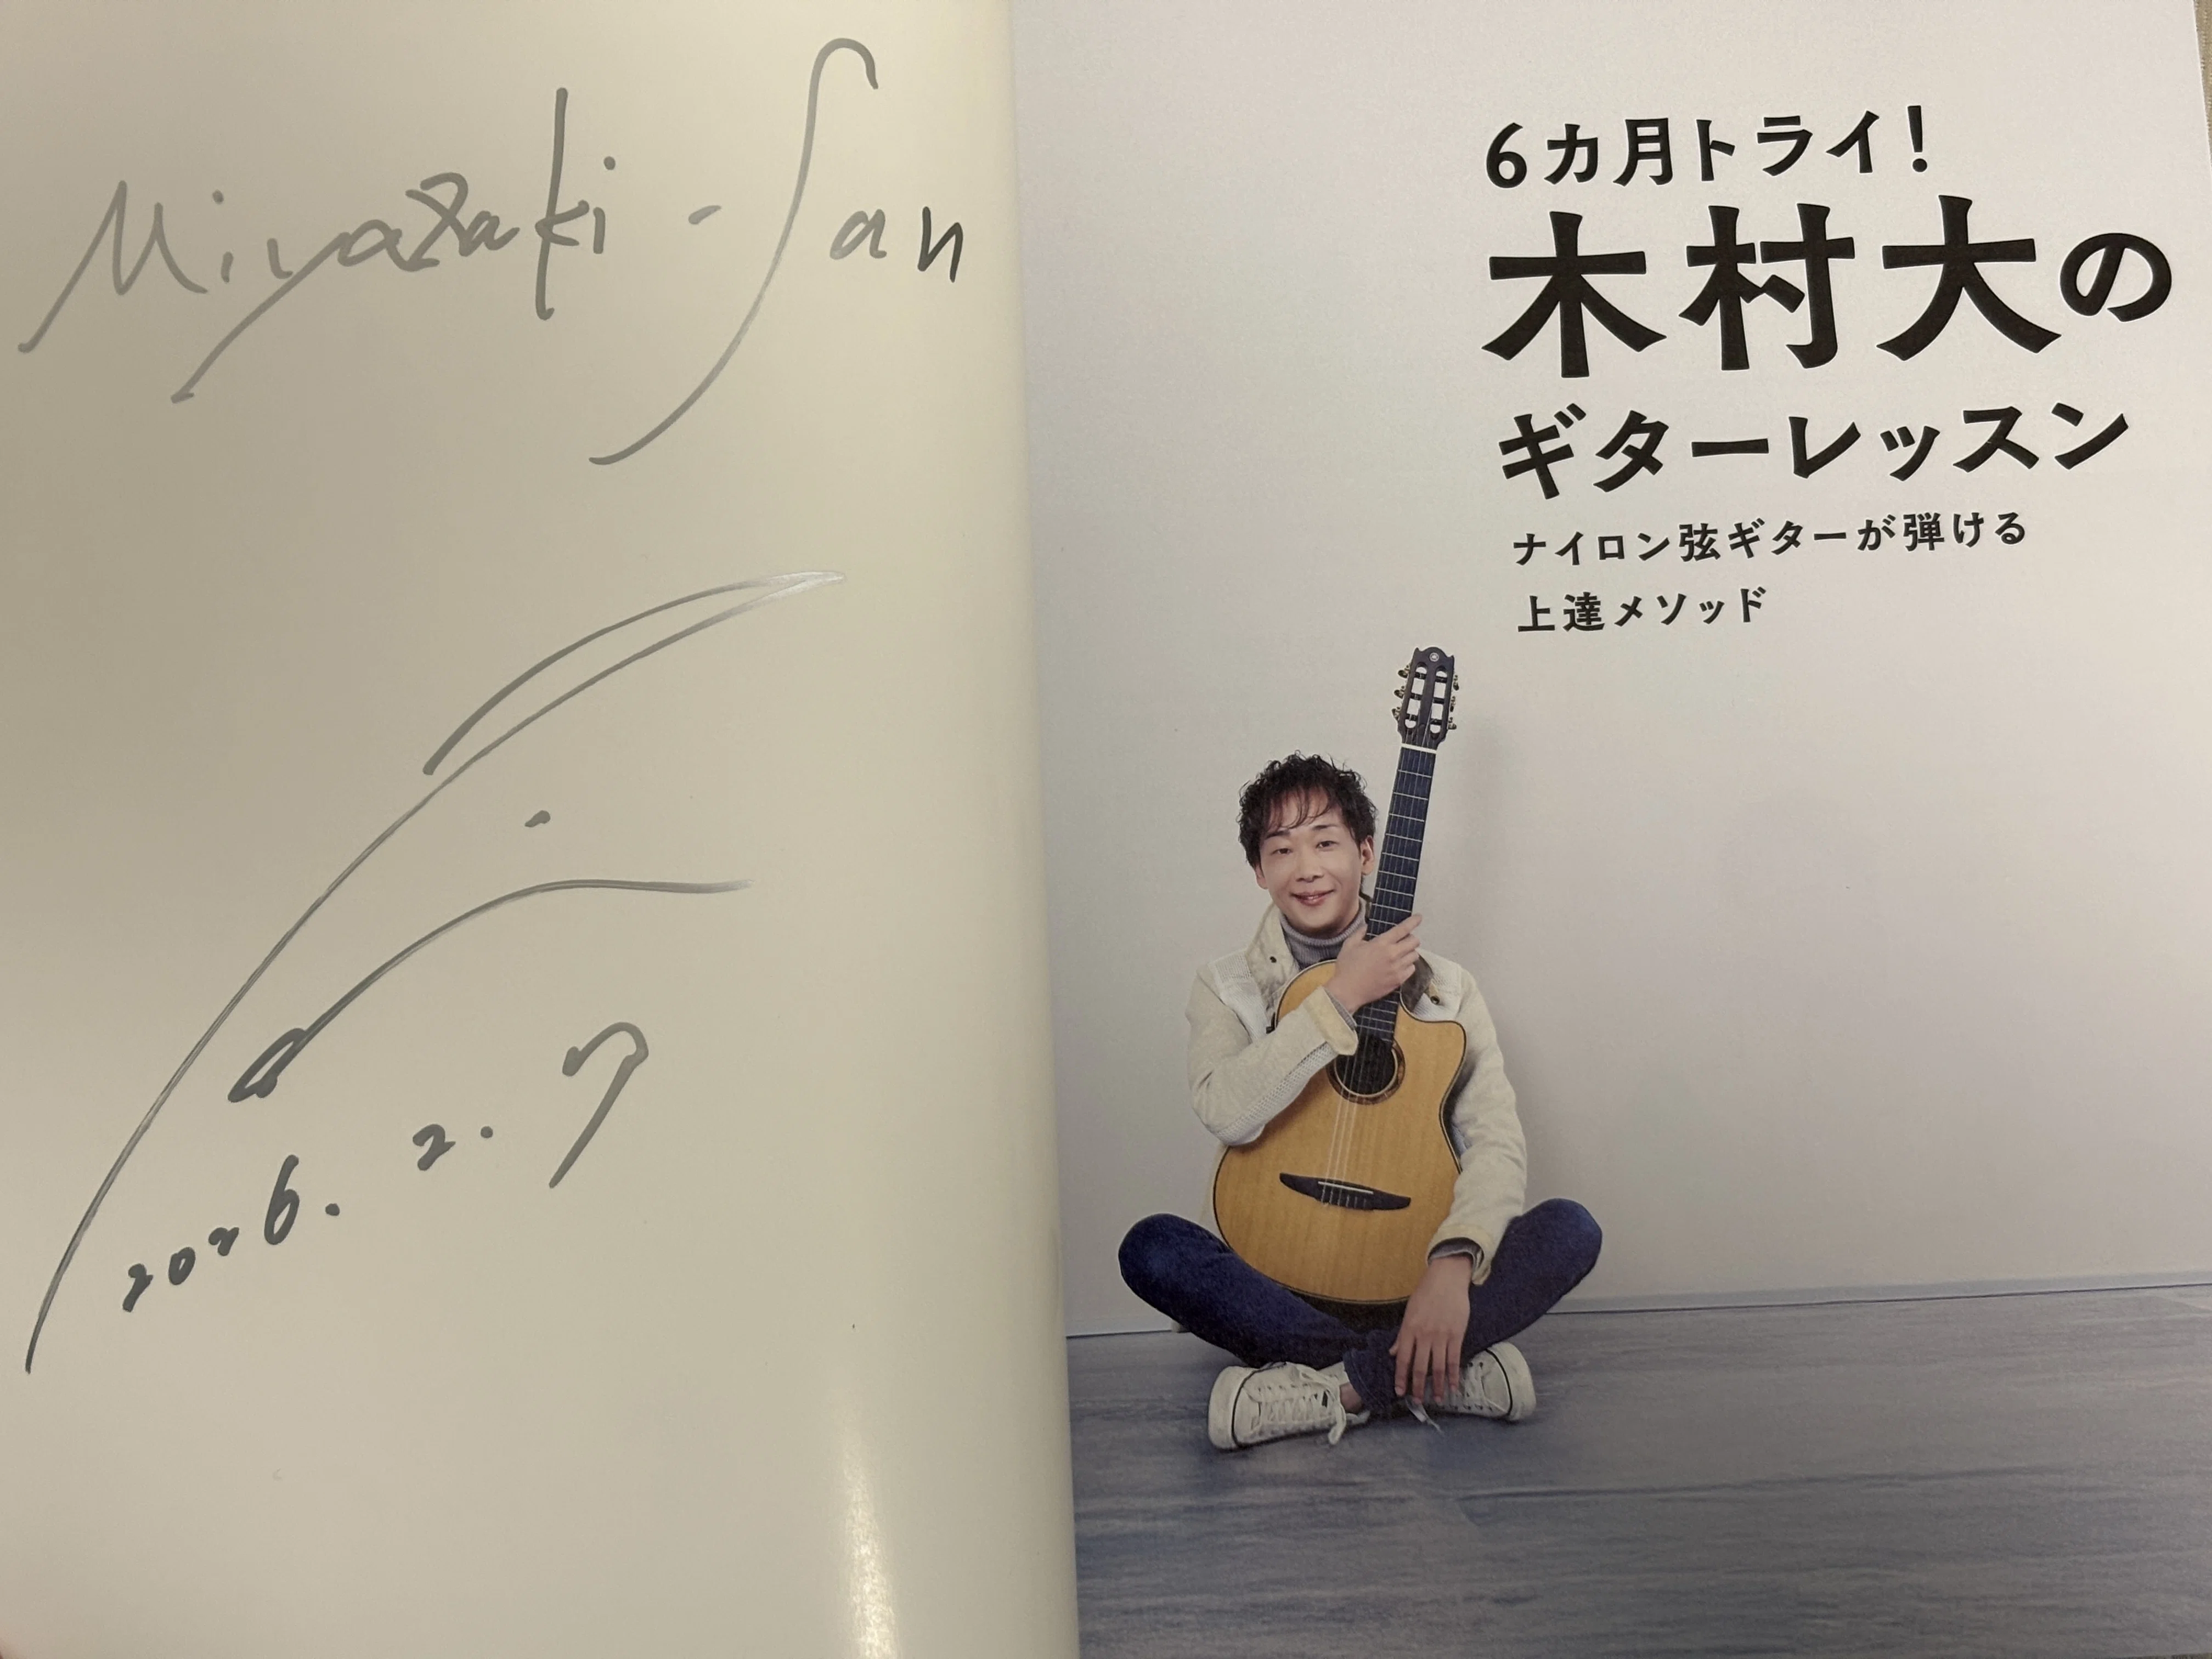 Miyazaki-San
2026. 2. 7
6カ月トライ!
木村大の
ギターレッスン
ナイロン弦ギターが弾ける
上達メソッド